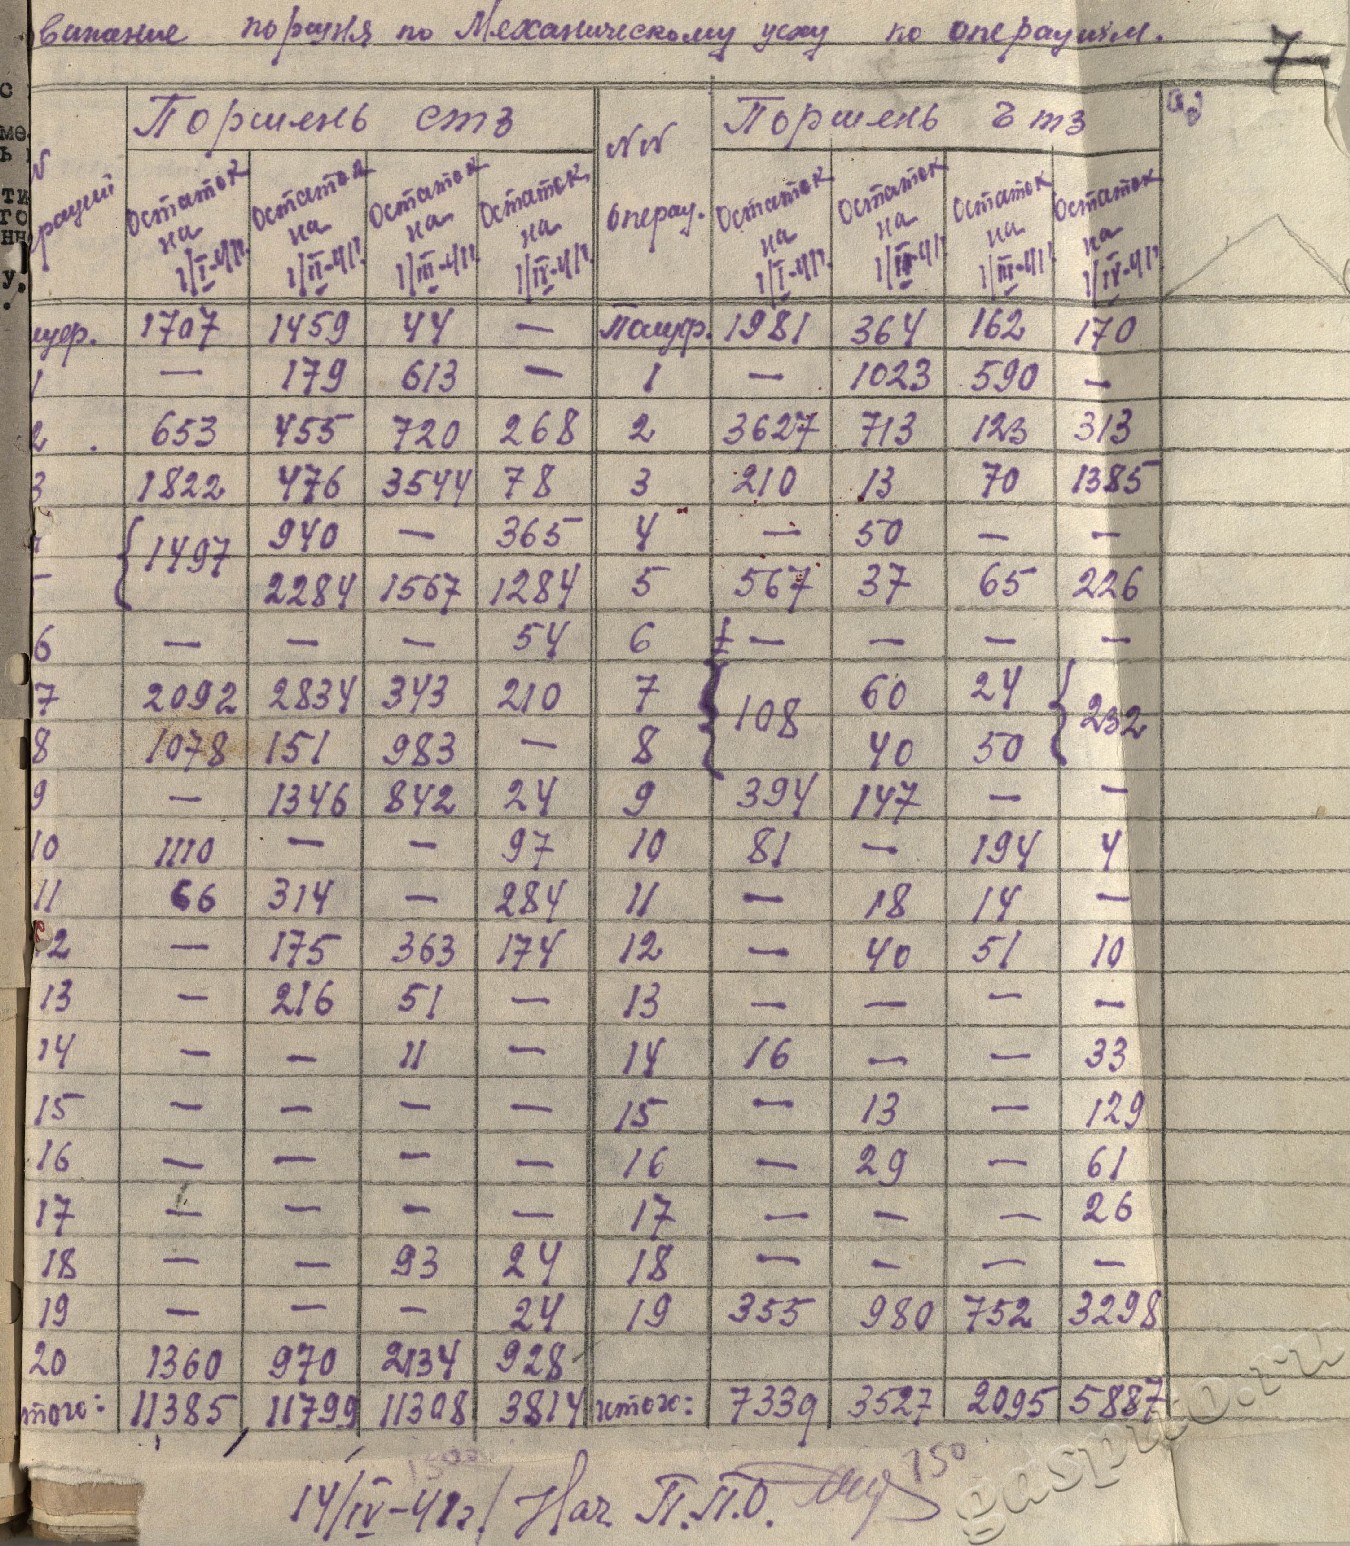 вижение поршня по Механическому цеху по операциям.
7
Поршень СТЗ Поршень ЧТЗ
№ раций Остаток на 1/I-41г. Остаток на 1/II-41г. Остаток на 1/III-41г. Остаток на 1/IV-41г. №№ операц. Остаток на 1/I-41г. Остаток на 1/II-41г. Остаток на 1/III-41г. Остаток на 1/IV-41г.
луф. 1707 1459 44 — Полуф. 1981 364 162 170
1 — 179 613 — 1 — 1023 590 —
2 653 455 720 268 2 3627 713 123 313
3 1822 476 3544 78 3 210 13 70 1385
{ 1497 940 — 365 4 — 50 — —
2284 1567 1284 5 567 37 65 226
6 — — — 54 6 — — — —
7 2092 2834 343 210 7 { 108 60 24 { 232
8 1078 151 983 — 8 40 50
9 — 1346 842 24 9 394 147 — —
10 1110 — — 97 10 81 — 194 4
11 66 314 — 284 11 — 18 14 —
12 — 175 363 174 12 — 40 51 10
13 — 216 51 — 13 — — — —
14 — — 11 — 14 16 — — 33
15 — — — — 15 — 13 — 129
16 — — — — 16 — 29 — 61
17 — — — — 17 — — — 26
18 — — 93 24 18 — — — —
19 — — — 24 19 355 980 752 3298
20 1360 970 2134 928
того: 11385 11799 11308 3814 итого: 7339 3527 2095 5887
150
14/IV-41г. Нач П.П.О.
gaspito.ru